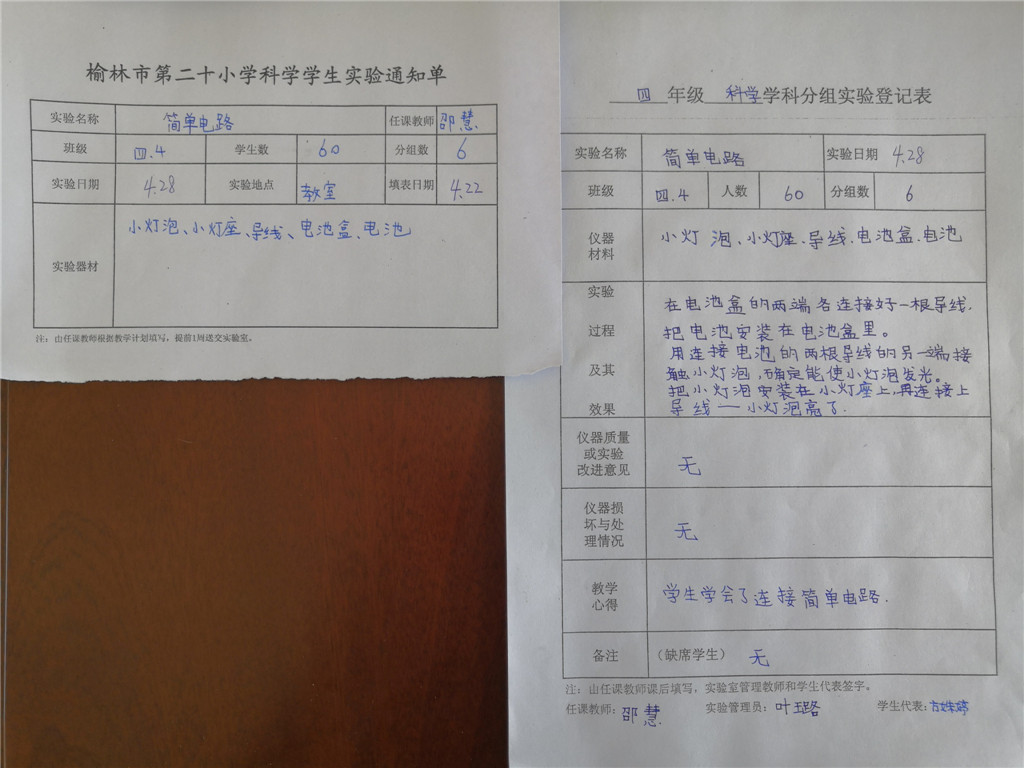 榆林市第二十小学科学学生实验通知单
实验名称 简单电路 任课教师 邵慧
班级 四.4 学生数 60 分组数 6
实验日期 4.28 实验地点 教室 填表日期 4.22
实验器材 小灯泡、小灯座、导线、电池盒、电池
注：由任课教师根据教学计划填写，提前1周送交实验室。
四 年级 科学 学科分组实验登记表
实验名称 简单电路 实验日期 4.28
班级 四.4 人数 60 分组数 6
仪器
材料
小灯泡、小灯座、导线、电池盒、电池
实验
过程
及其
效果
在电池盒的两端各连接好一根导线.
把电池安装在电池盒里。
用连接电池的两根导线的另一端接
触小灯泡,确定能使小灯泡发光。
把小灯泡安装在小灯座上,再连接上
导线——小灯泡亮了.
仪器质量
或实验
改进意见
无
仪器损
坏与处
理情况
无
教学
心得
学生学会了连接简单电路.
备注 （缺席学生） 无
注：由任课教师课后填写，实验室管理教师和学生代表签字。
任课教师：邵慧 实验管理员：叶珏路 学生代表：方姝婷